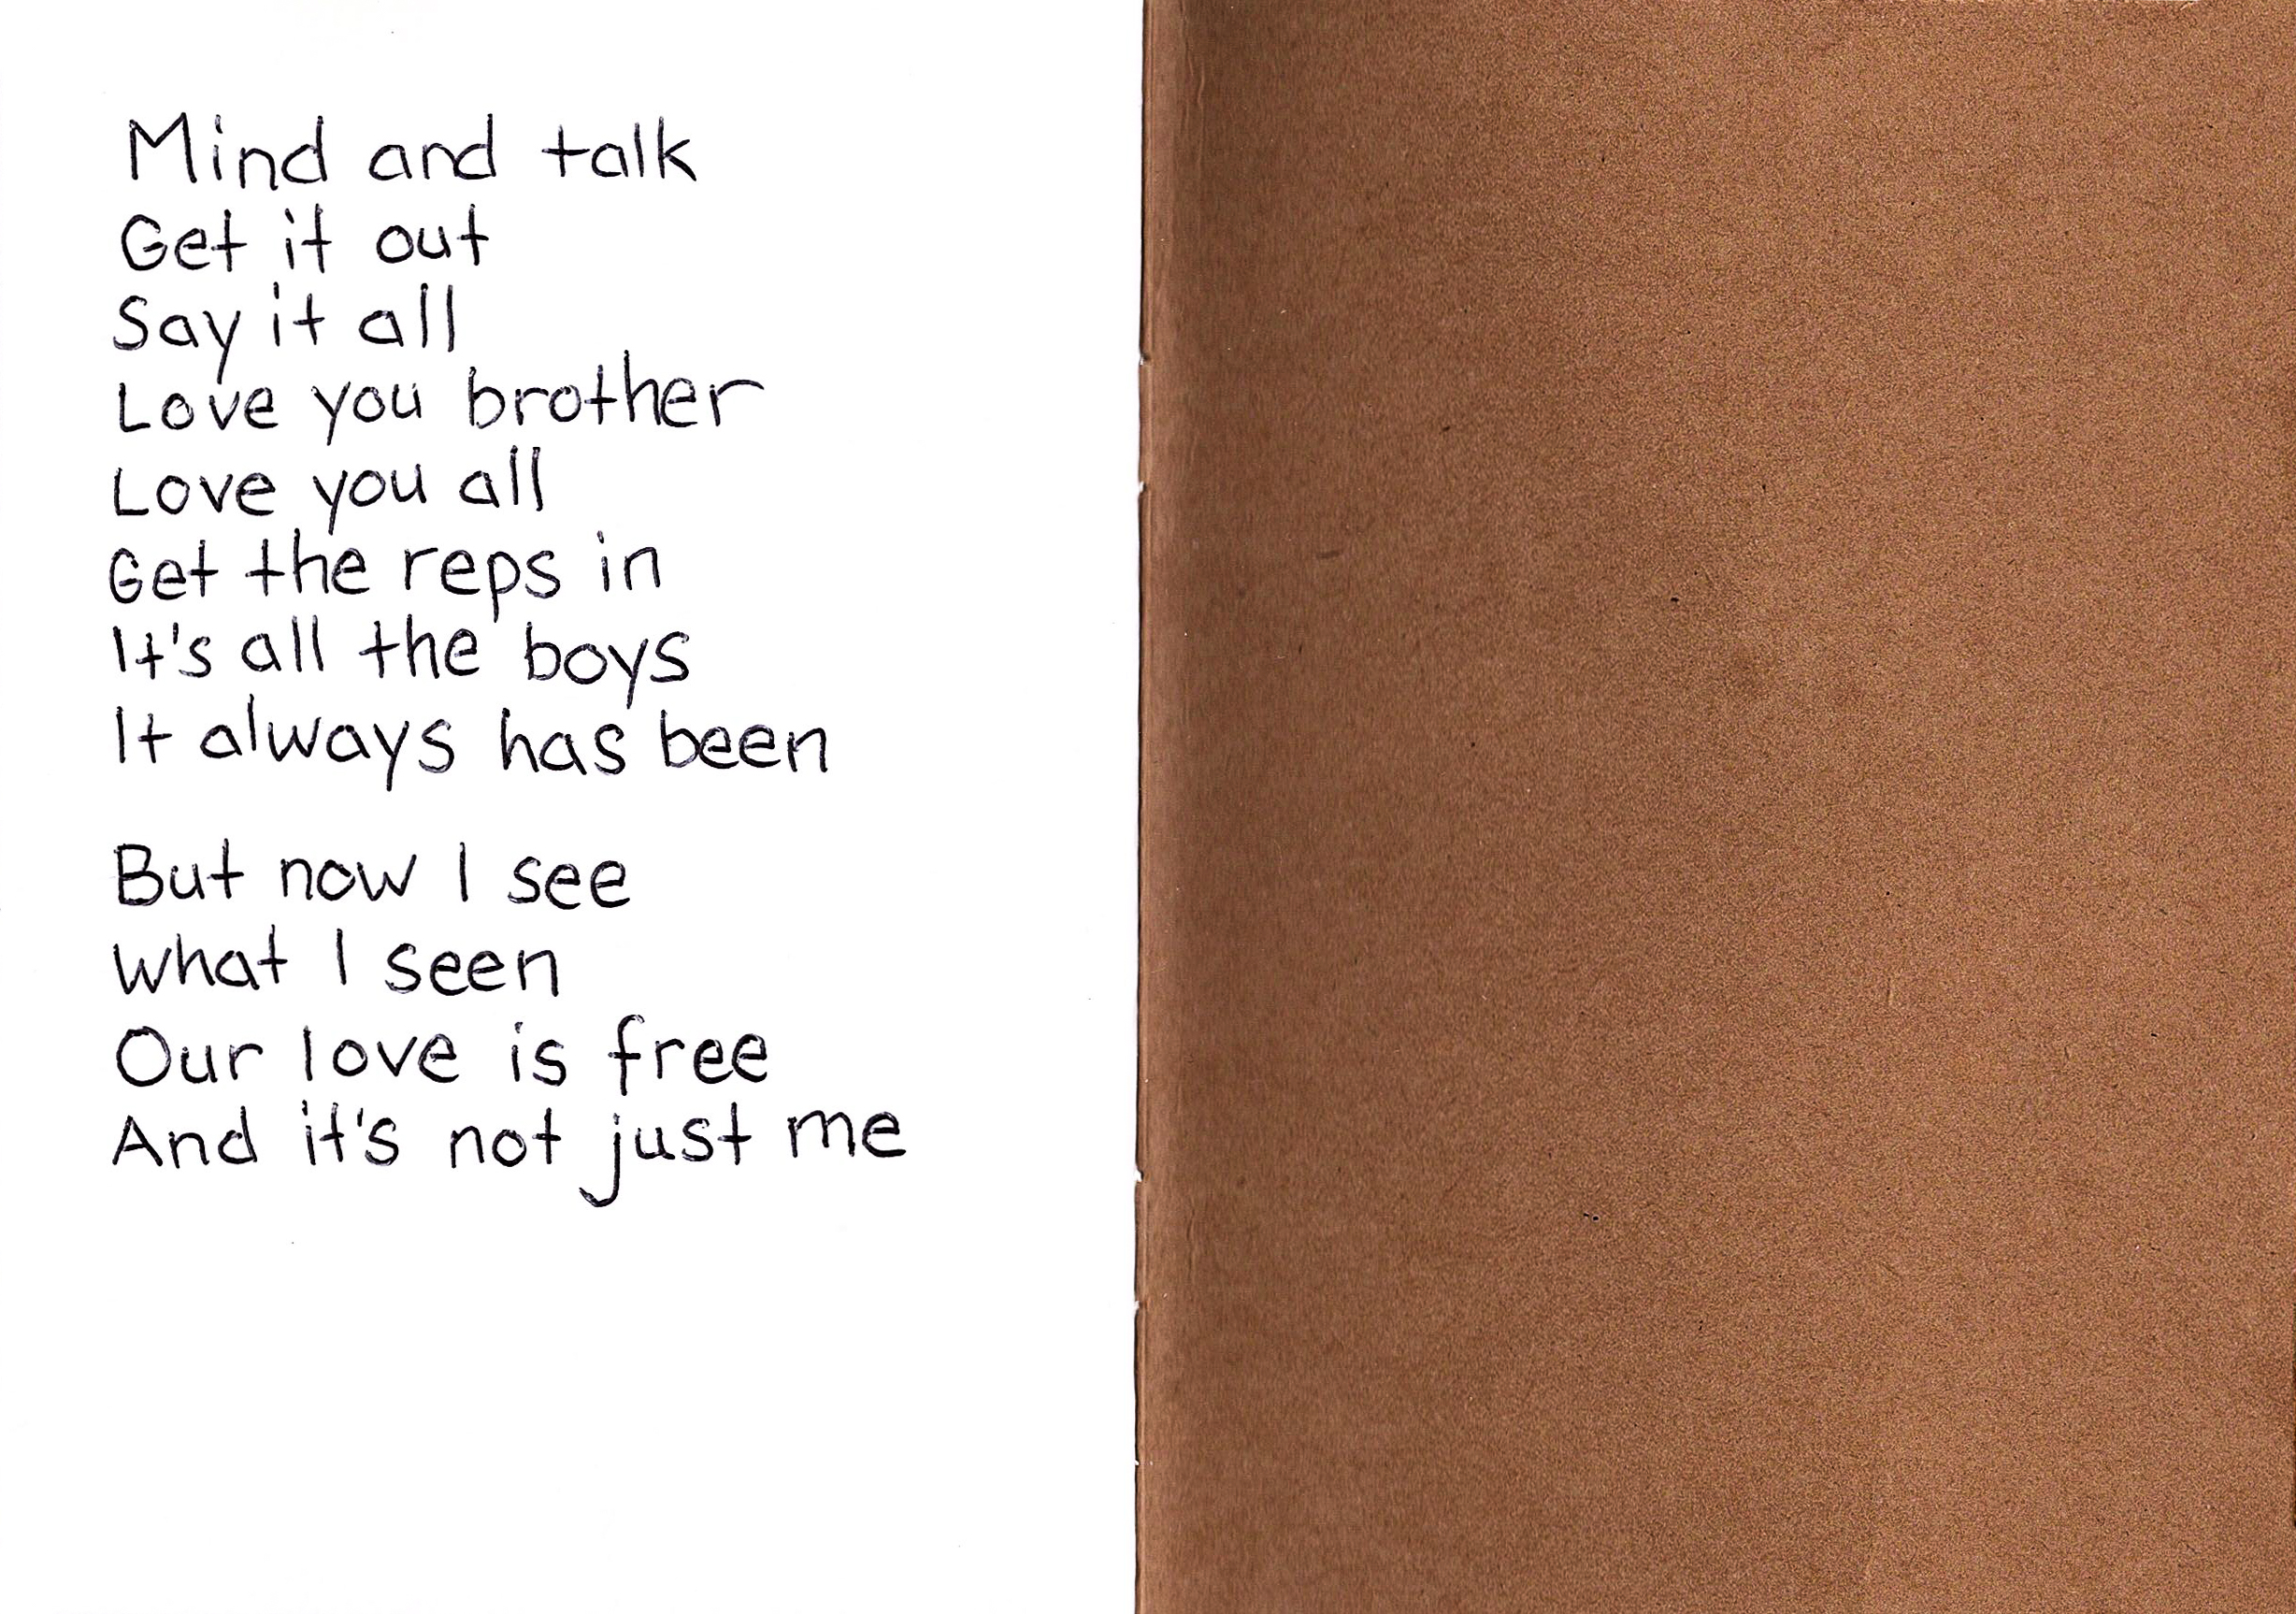 Mind and talk
Get it out
Say it all
Love you brother
Love you all
Get the reps in
It's all the boys
It always has been
But now I see
What I seen
Our love is free
And it's not just me